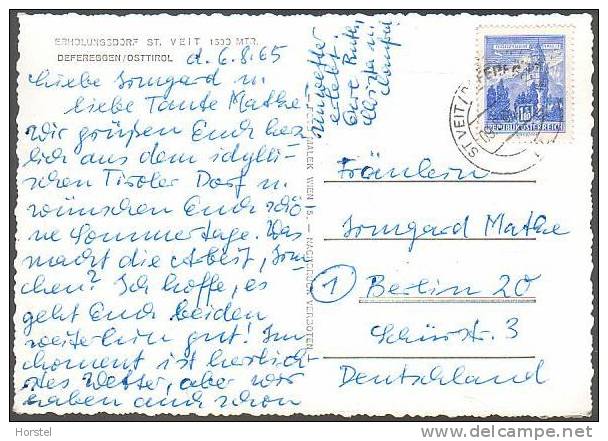 ERHOLUNGSDORF ST. VEIT 1500 MTR.
DEFEREGGEN/OSTTIROL
d. 6.8.65
Liebe Irmgard u.
liebe Tante Mathe
Wir grüßen Euch herz
lich aus dem idylli-
schen Tiroler Dorf u.
wünschen Euch schö-
ne Sommertage. Was
macht die Arbeit, Irm-
chen? Ich hoffe, es
geht Euch beiden
weiterhin gut! Im
Moment ist herrlich-
stes Wetter, aber wir
haben auch schon
Unwetter
erlebt.
Eure Ruth,
WIEN 15. — NACHDRUCK VERBOTEN
REPUBLIK ÖSTERREICH
ST. VEIT
Fräulein
Irmgard Mathe
1 Berlin 20
Schürstr. 3
Deutschland
Horstel
delcampe.net